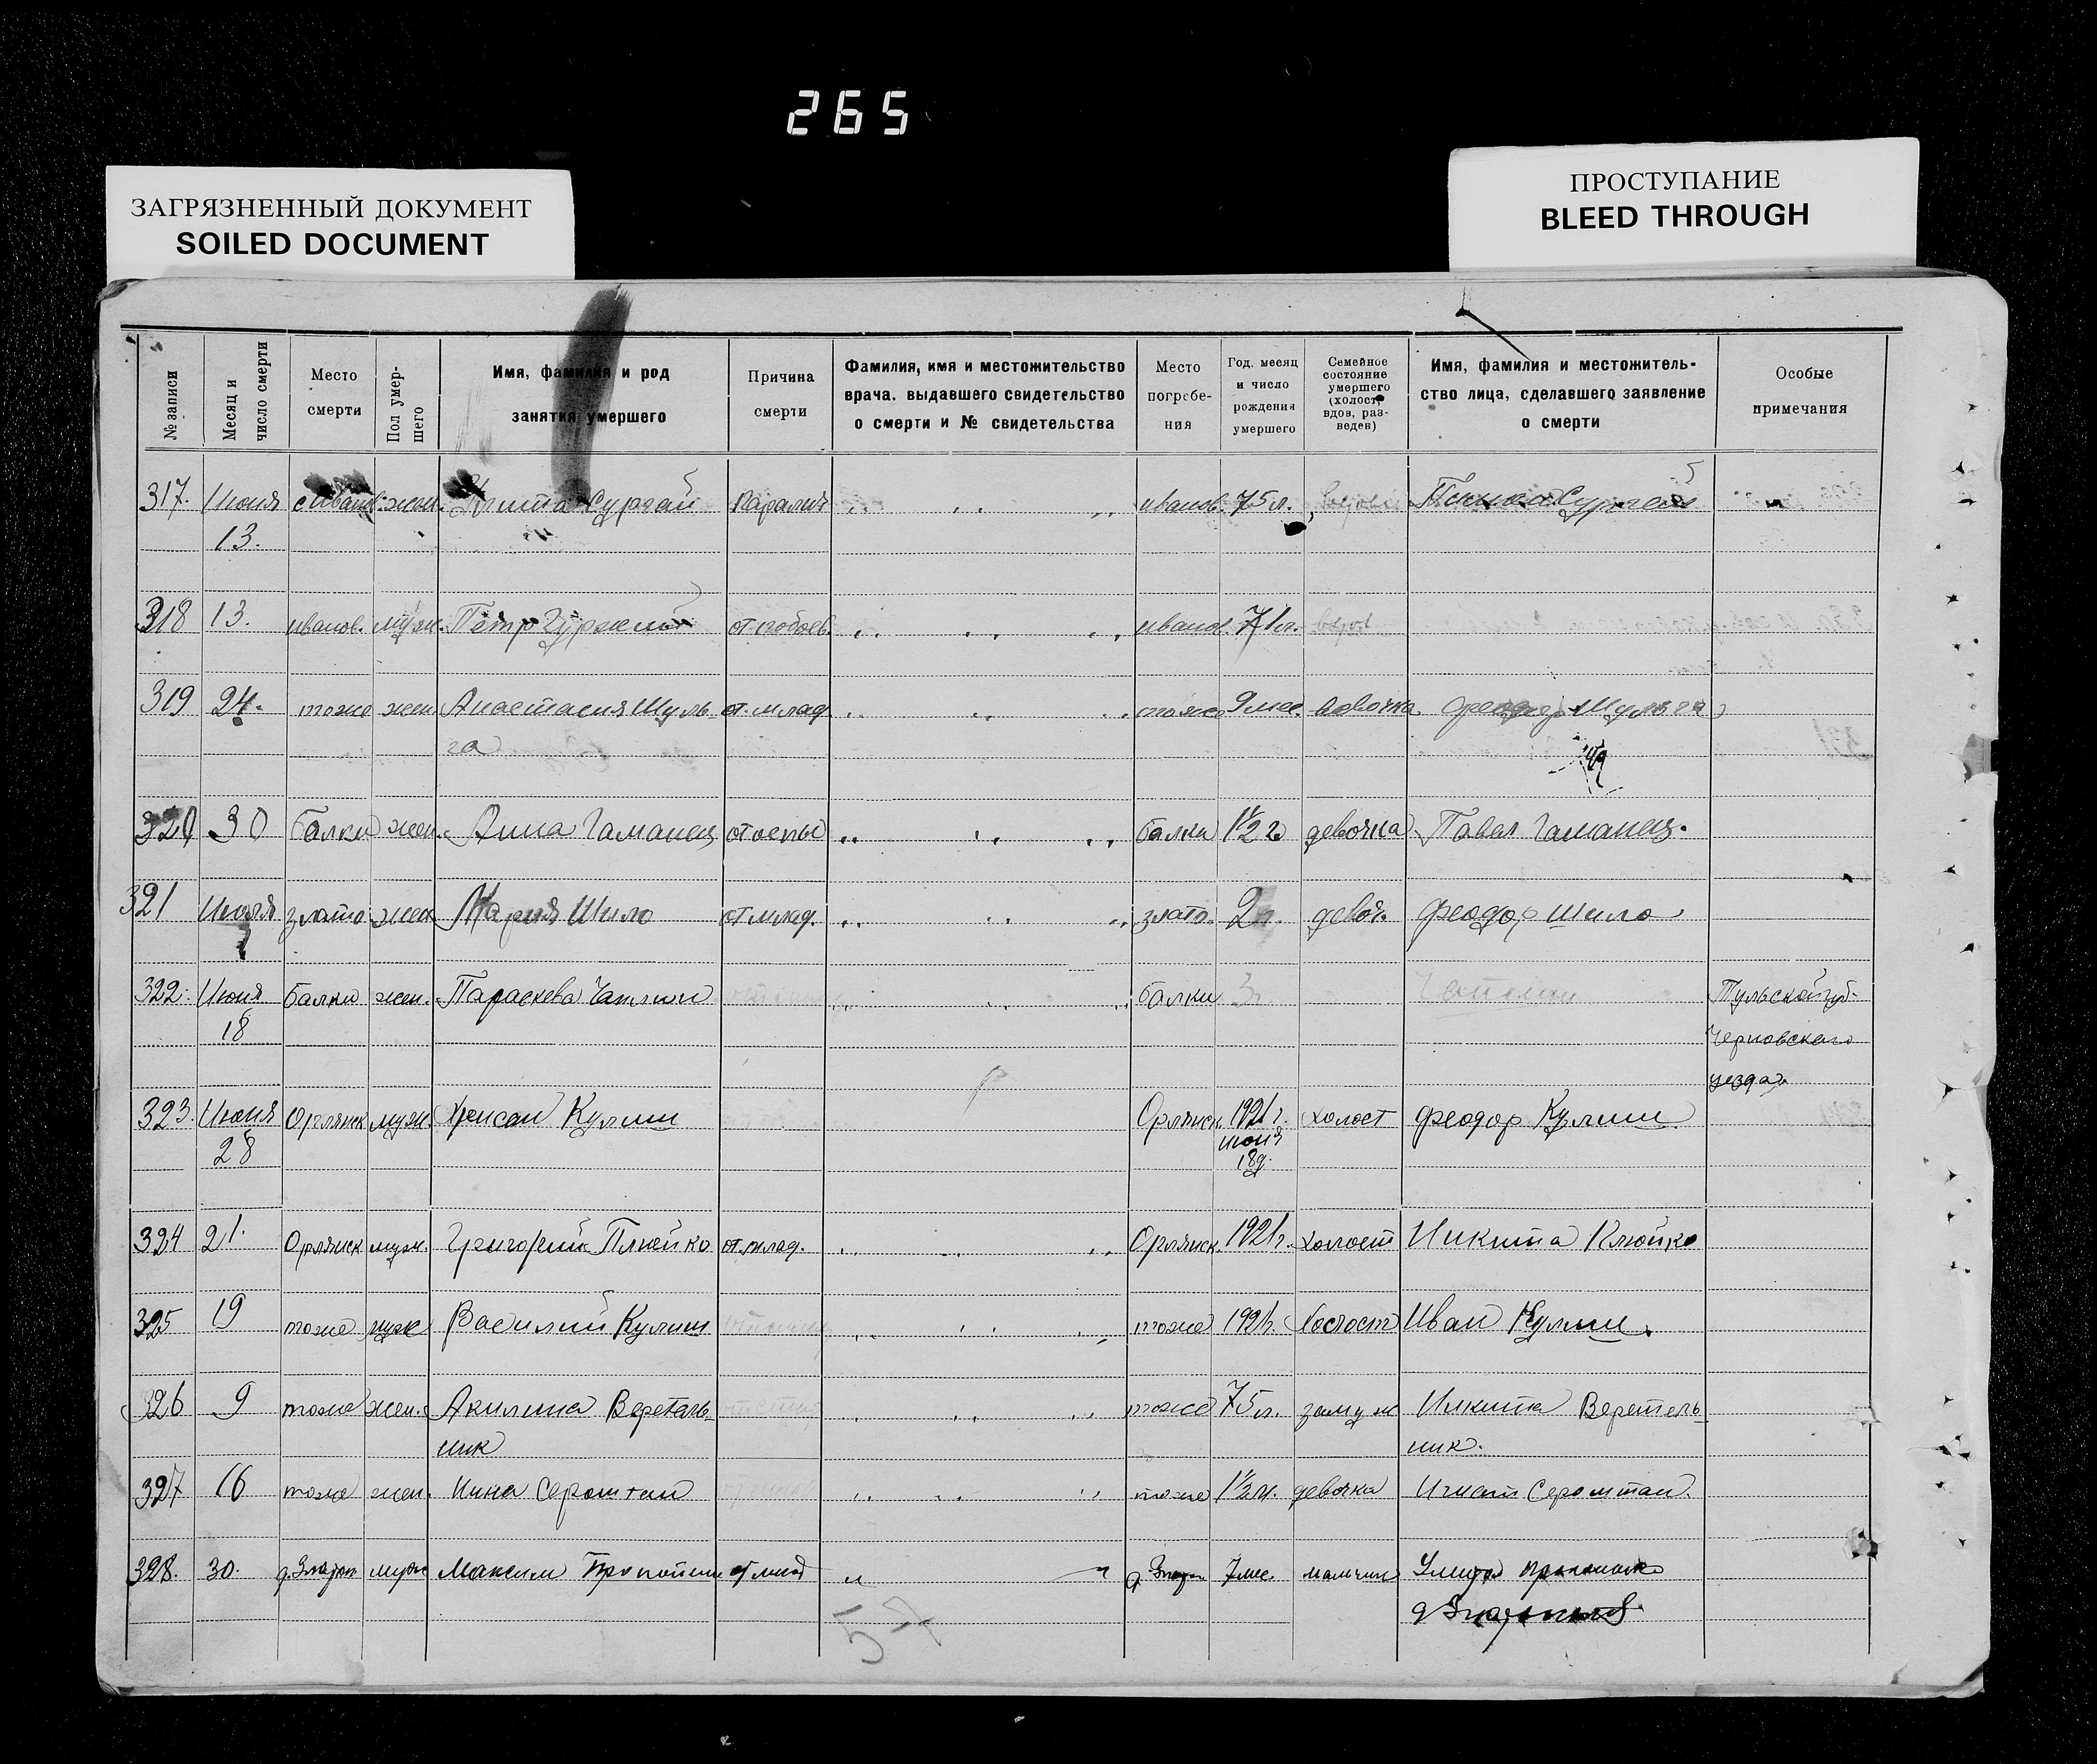 265
ЗАГРЯЗНЕННЫЙ ДОКУМЕНТ
SOILED DOCUMENT
ПРОСТУПАНИЕ
BLEED THROUGH
№ записи
Месяц и число смерти
Место смерти
Пол умер-шего
Имя, фамилия и род занятия умершего
Причина смерти
Фамилия, имя и местожительство врача, выдавшего свидетельство о смерти и № свидетельства
Место погребе-ния
Год, месяц и число рождения умершего
Семейное состояние умершего (холост, вдов, раз-веден)
Имя, фамилия и местожитель-ство лица, сделавшего заявление о смерти
Особые примечания
317. Июня жен. Паралич иванов. 75 л.
13.
318 13. иванов. муж. Петр от побоев. иванов. 71 л. вдов
319 24. тоже жен. Анастасия Шуль от млад. тоже 9 мес. девочка Феодор Шульга
га
320 30 балки жен. Анна Гаманец от оспы балки 1½ г девочка Павел Гаманец.
321 Июля злато жен Мария Шило от млад. злато. 2 г. девоч. Феодор Шило
7
322. Июня балки жен. Параскева балки 3 г. Тульской губ.
18 Черновского
уезда
323. Июня Орлянск муж. Хрисан Кулиш Орлянск 1921 г. холост Феодор Кулиш
28 июня
18 д.
324 21. Орлянск муж. Григорий Плюйко от млад. Орлянск. 1921 г. холост Никита Клюйко
325 19 тоже муж Василий Кулиш тоже 1921 г. холост Иван Кулиш.
326 9 тоже жен. Акилина Веретель тоже 75 л. замуж Никита Веретель
ник ник.
327 16 тоже жен. Нина Сероштан тоже 1½ м. девочка Игнат Сероштан.
328. 30. муж Максим от млад 7 мес. мальчик
57